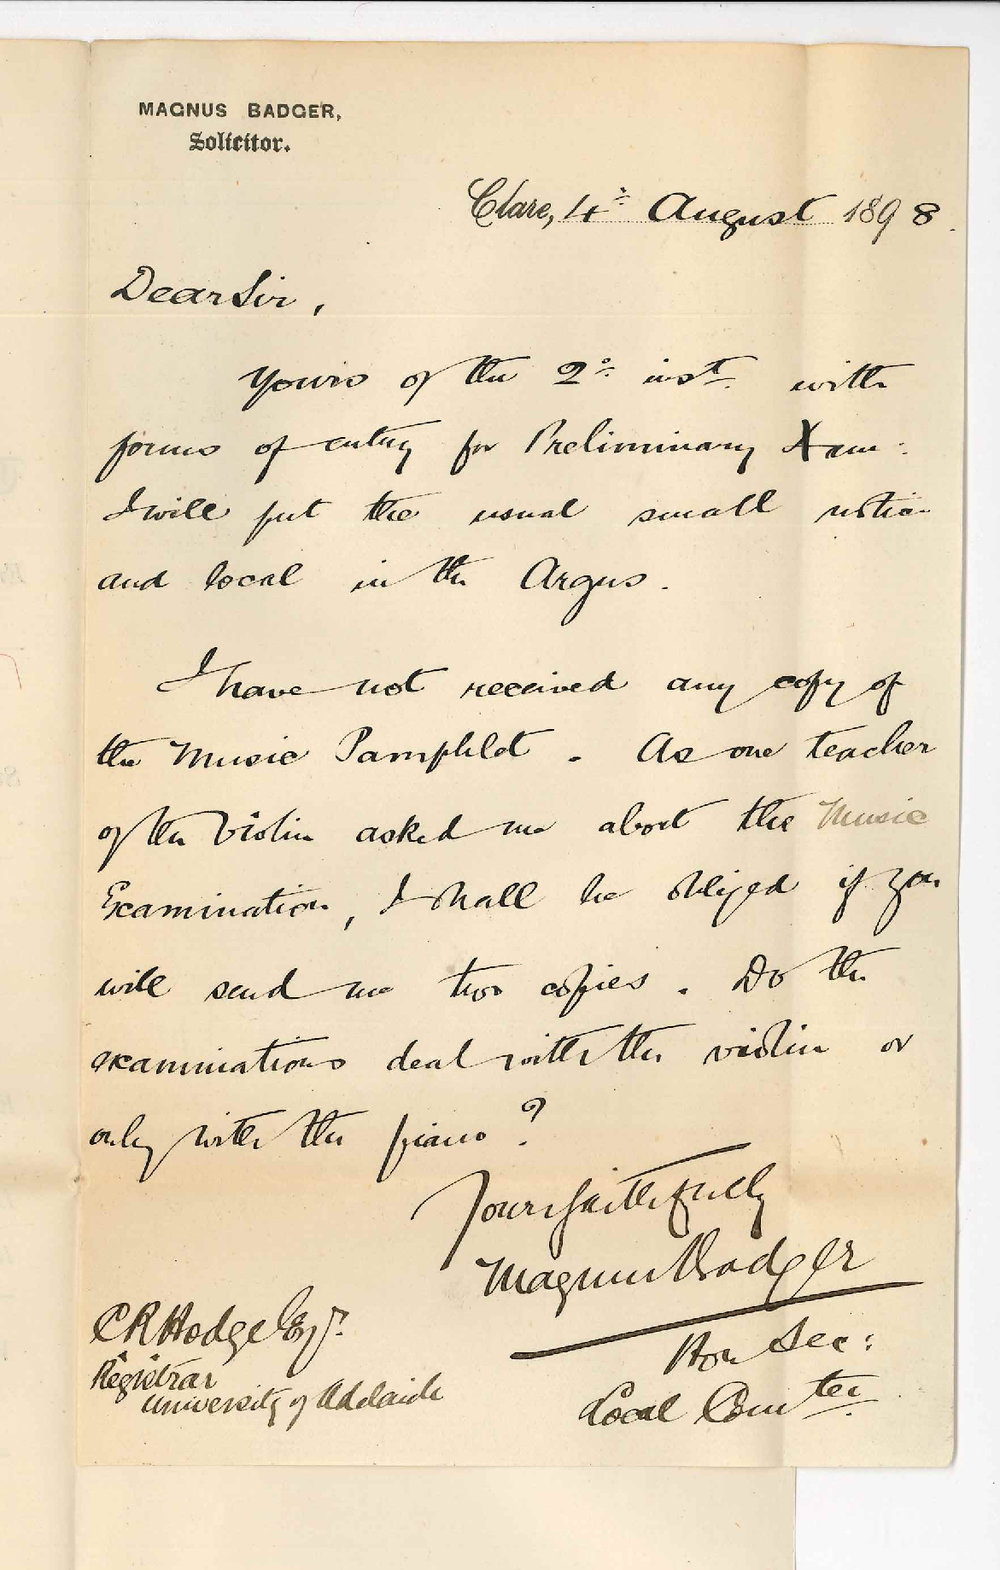 MAGNUS BADGER,
Solicitor.
Clare, 4th August 1898.
Dear Sir,
Yours of the 2d inst. with
forms of entry for Preliminary Xam:
I will put the usual small notice
and local in the Argus.
I have not received any copy of
the Music Pamphlet. As one teacher
of the Violin asked me about the Music
Examination, I shall be obliged if you
will send me two copies. Do the
examinations deal with the violin or
only with the piano?
Yours faithfully
Magnus Badger
Hon Sec:
Local Comtee
C R Hodge Esqr.
Registrar
University of Adelaide